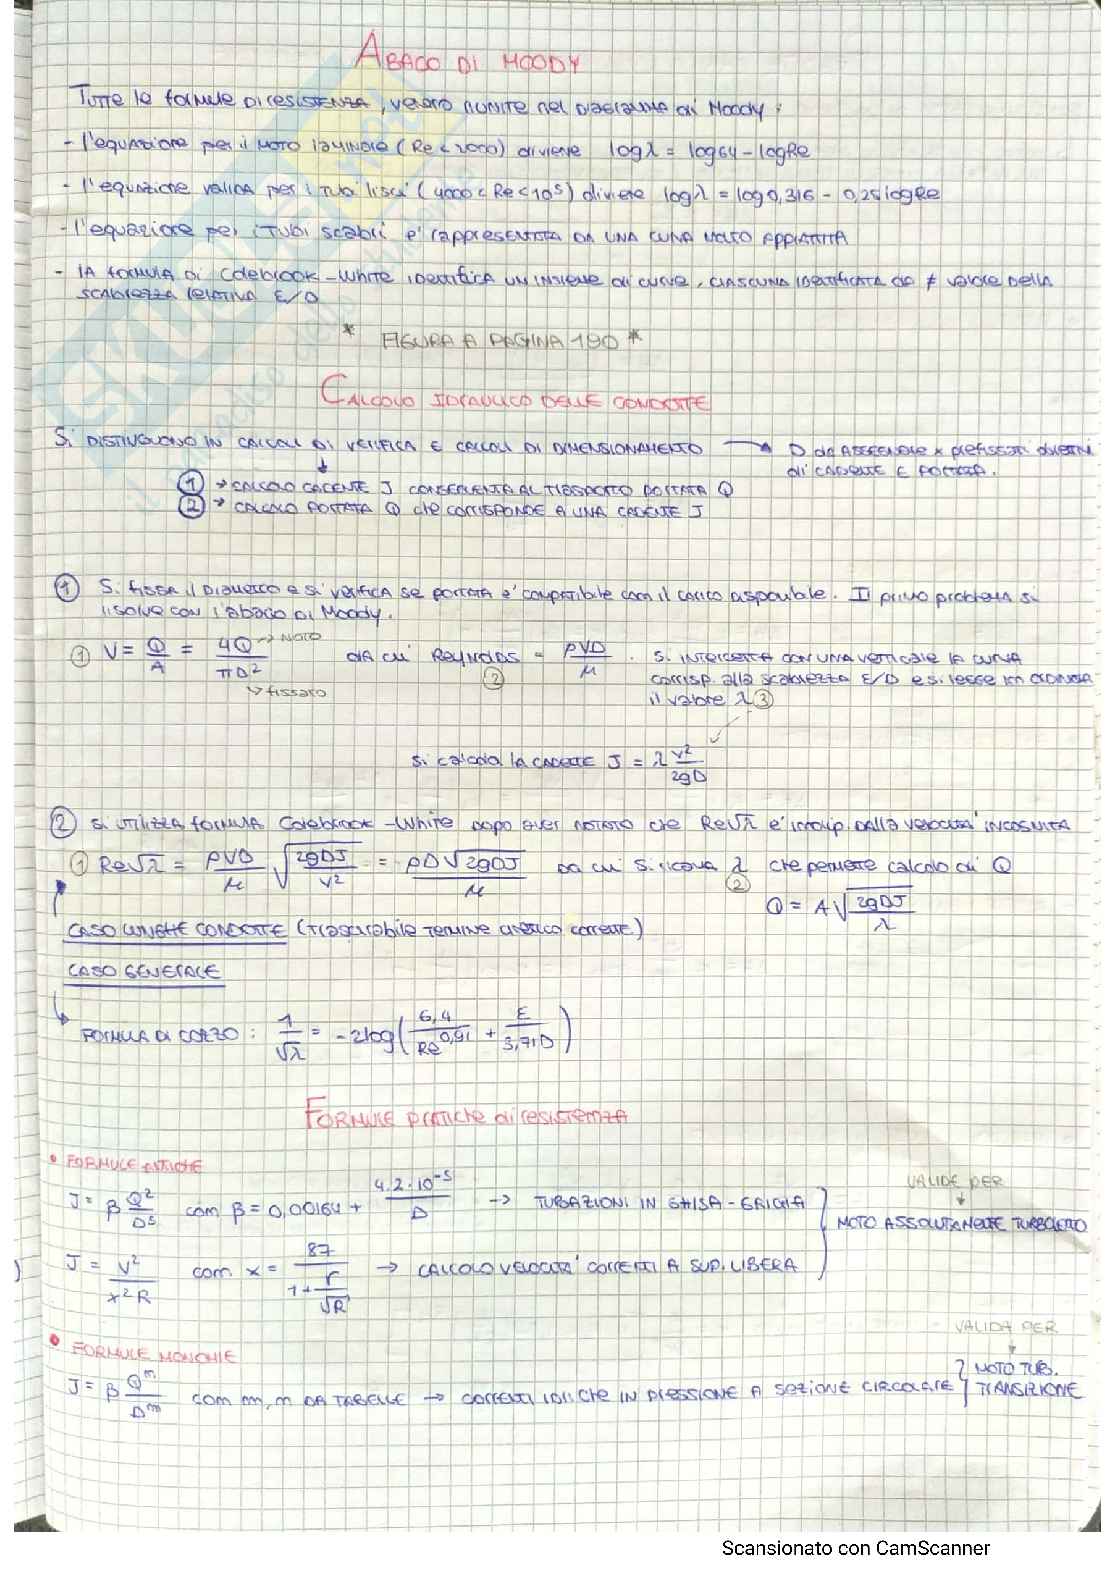 ABACO DI MOODY
TUTTE le formule DI RESISTENZA, vengono riunite nel DIAGRAMMA di Moody:
- l'equazione per il MOTO laminare (Re < 2000) diviene logλ = log64 - logRe
- l'equazione valida per i TUBI lisci (4000 < Re < 10⁵) diviene logλ = log0,316 - 0,25logRe
- l'equazione per i TUBI scabri è rappresentata DA UNA CURVA MOLTO APPIATTITA
- LA formula di Colebrook-White identifica un insieme di curve, CIASCUNA IDENTIFICATA da ≠ valore della
SCABREZZA relativa E/D
* FIGURA A PAGINA 190 *
CALCOLO IDRAULICO DELLE CONDOTTE
Si DISTINGUONO IN CALCOLI DI VERIFICA E CALCOLI DI DIMENSIONAMENTO → D da ASSEGNARE x prefissati valori
di CADENTE E PORTATA.
① → CALCOLO CADENTE J CONSEGUENTE AL TRASPORTO PORTATA Q
② → CALCOLO PORTATA Q che CORRISPONDE A UNA CADENTE J
① Si fissa il DIAMETRO e si verifica se PORTATA è compatibile con il carico disponibile. Il primo problema si
risolve con l'abaco di Moody.
① V = Q/A = 4Q/πD² → NOTO → fissato da cui Reynolds = ρVD/μ ② . Si INTERSETTA CON UNA verticale la CURVA
corrisp. alla scabrezza E/D e si legge in ordinata
il valore λ ③
Si calcola la CADENTE J = λ v²/2gD
② Si UTILIZZA formula Colebrook-White dopo aver notato che Re√λ è indip. dalla velocità INCOGNITA
① Re√λ = ρVD/μ √(2gDJ/v²) = ρD√(2gDJ)/μ da cui si ricava λ ② che permette calcolo di Q
Q = A√(2gDJ/λ)
CASO LUNGHE CONDOTTE (trascurabile TERMINE cinetico corrente)
CASO GENERALE
FORMULA DI CORZO: 1/√λ = -2log(6,4/Re^0,91 + E/3,71D)
FORMULE pratiche di resistenza
• FORMULE ANTICHE
J = β Q²/D⁵ com β = 0,00164 + 4.2·10⁻⁵/D → TUBAZIONI IN GHISA-GRIGIA
J = V²/x²R com x = 87/(1+r/√R) → CALCOLO VELOCITÀ CORRENTI A SUP. LIBERA
VALIDE PER
MOTO ASSOLUTAMENTE TURBOLENTO
• FORMULE MONOMIE
J = β Qⁿ/Dᵐ com m, n DA TABELLE → CORRENTI IDRICHE IN PRESSIONE A SEZIONE CIRCOLARE
VALIDA PER
MOTO TURB.
TRANSIZIONE
Scansionato con CamScanner